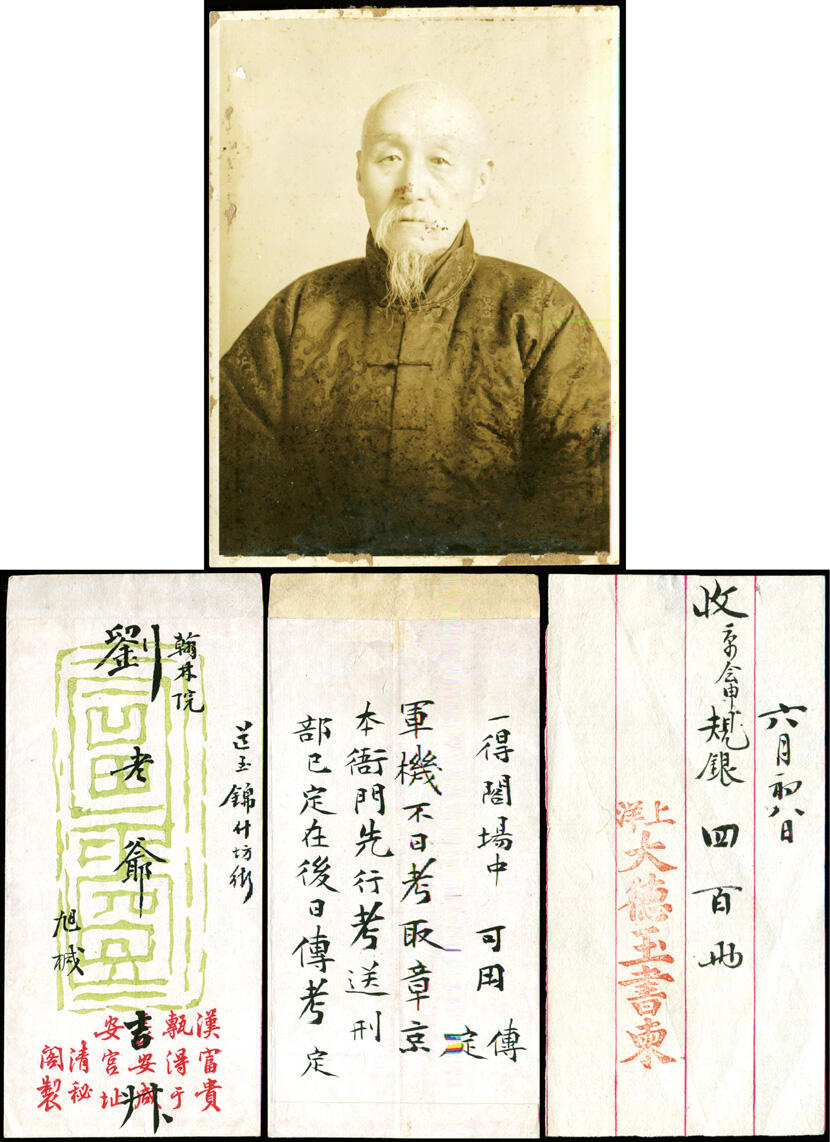 送至錦什坊街
翰林院
劉老爺
旭椷
漢富貴
甎得于
安宮址
清秘
閣製
一得閣場中 可用 傳
定
軍機不日考取章京
本衙門先行考送刑
部已定在後日傳考 定
六月初八日
收 規銀四百両
上洋
大德玉書柬